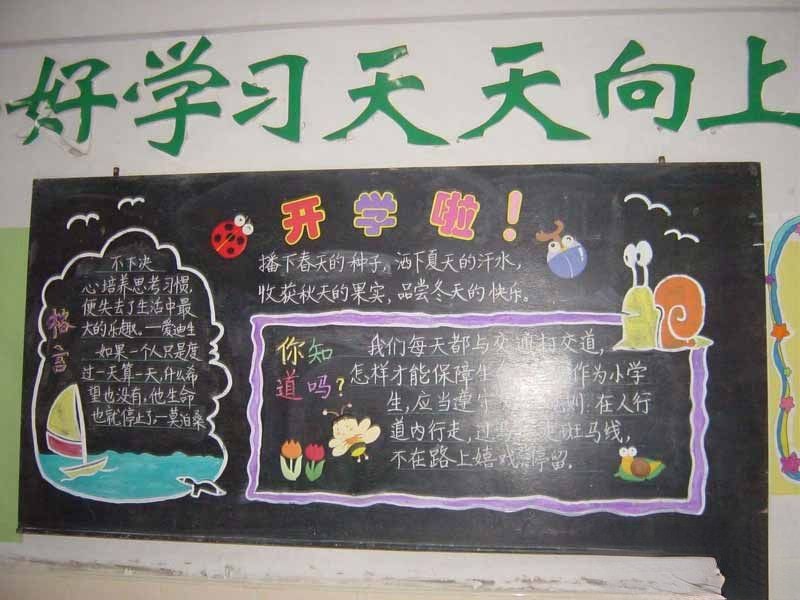 好学习天天向上
开学啦！
播下春天的种子，洒下夏天的汗水，
收获秋天的果实，品尝冬天的快乐。
格言
不下决
心培养思考习惯，
便失去了生活中最
大的乐趣。—爱迪生
如果一个人只是度
过一天算一天，什么希
望也没有，他生命
也就停止了。—莫泊桑
你知
道吗？
我们每天都与交通打交道，
怎样才能保障生 作为小学
生，应当遵守 则：在人行
道内行走，过马 走斑马线，
不在路上嬉戏 停留。